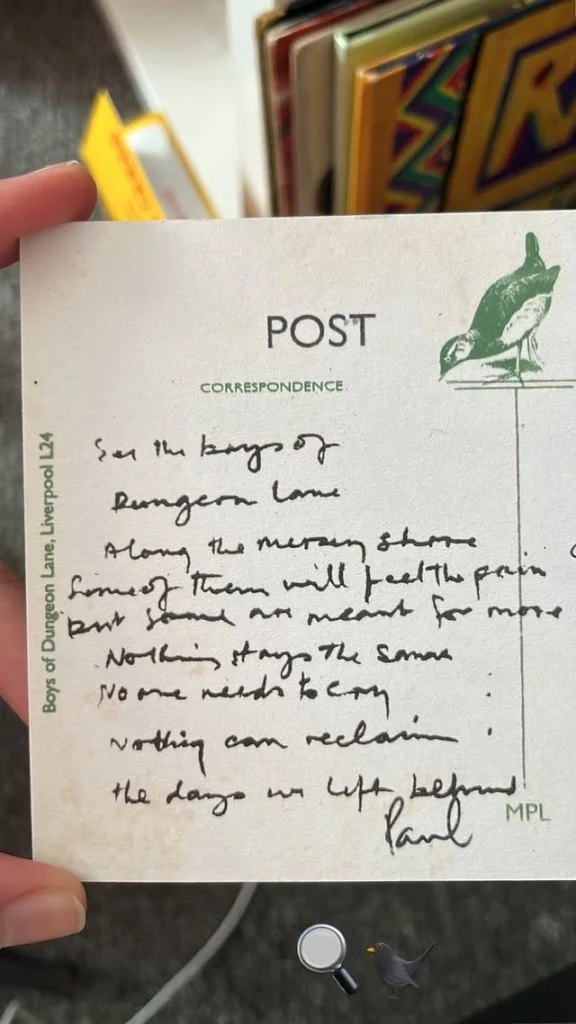 POST
CORRESPONDENCE
Boys of Dungeon Lane, Liverpool L24
See the boys of
Dungeon Lane
Along the mersey shore
Some of them will feel the pain
But some are meant for more
Nothing stays the same
No one needs to cry
Nothing can reclaim
the days we left behind
Paul
MPL